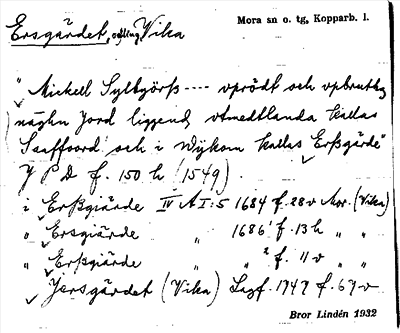 Ersgärdet, odling, Vika
Mora sn o. tg, Kopparb. l.
"Mickell Syltgörß ---- vprödt och vpbruthz
någhn Jord liggend, vtmedtlanda kallas
Saaffoord och i Wijkom kallas Erßgärde"
J P D f. 150 h (1549).
i Erßgiärde IV A I:5 1684 f. 28 v Mor. (Vika)
" Ersgiärde " 1686¹ f. 13 h " "
" Erßgiärde " " ² f. 11 v "
Jersgärdet (Vika) Lagf. 1747 f. 67 v
Bror Lindén 1932